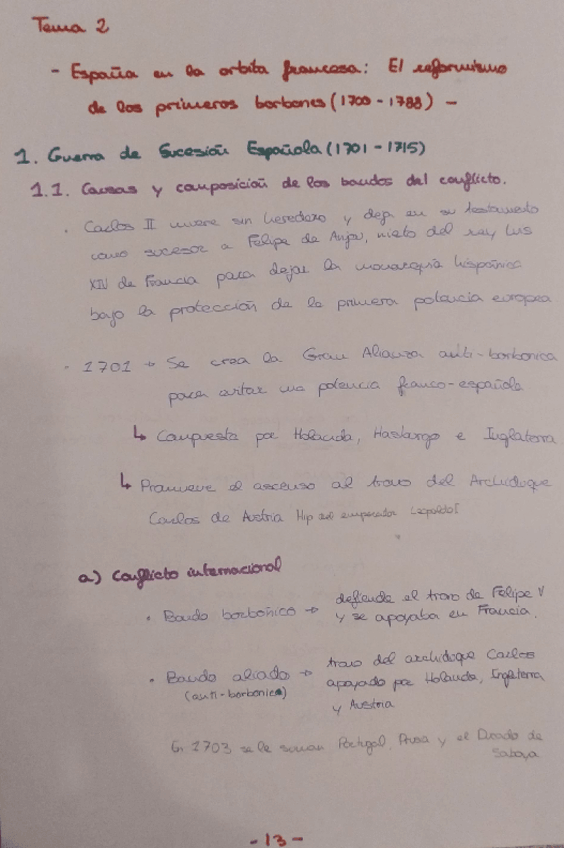 Tema 2
- España en la orbita francesa: El reformismo
de los primeros borbones (1700 - 1788) -
1. Guerra de Sucesión Española (1701 - 1715)
1.1. Causas y composición de los bandos del conflicto.
· Carlos II muere sin heredero y deja en su testamento
como sucesor a Felipe de Anjou, nieto del rey Luis
XIV de Francia para dejar la monarquía hispánica
bajo la protección de la primera potencia europea
- 1701 → Se crea la Gran Alianza anti-borbonica
para evitar una potencia franco-española
↳ Compuesta por Holanda, e Inglaterra
↳ Promueve el ascenso al trono del Archiduque
Carlos de Austria emperador Leopoldo I
a) Conflicto internacional
· Bando borbónico → defiende el trono de Felipe V
y se apoyaba en Francia.
· Bando aliado → trono del archiduque Carlos
(anti-borbonico) apoyado por Holanda, Inglaterra
y Austria
1703 se le suman Portugal, Prusia y el Ducado de
Saboya
- 13 -